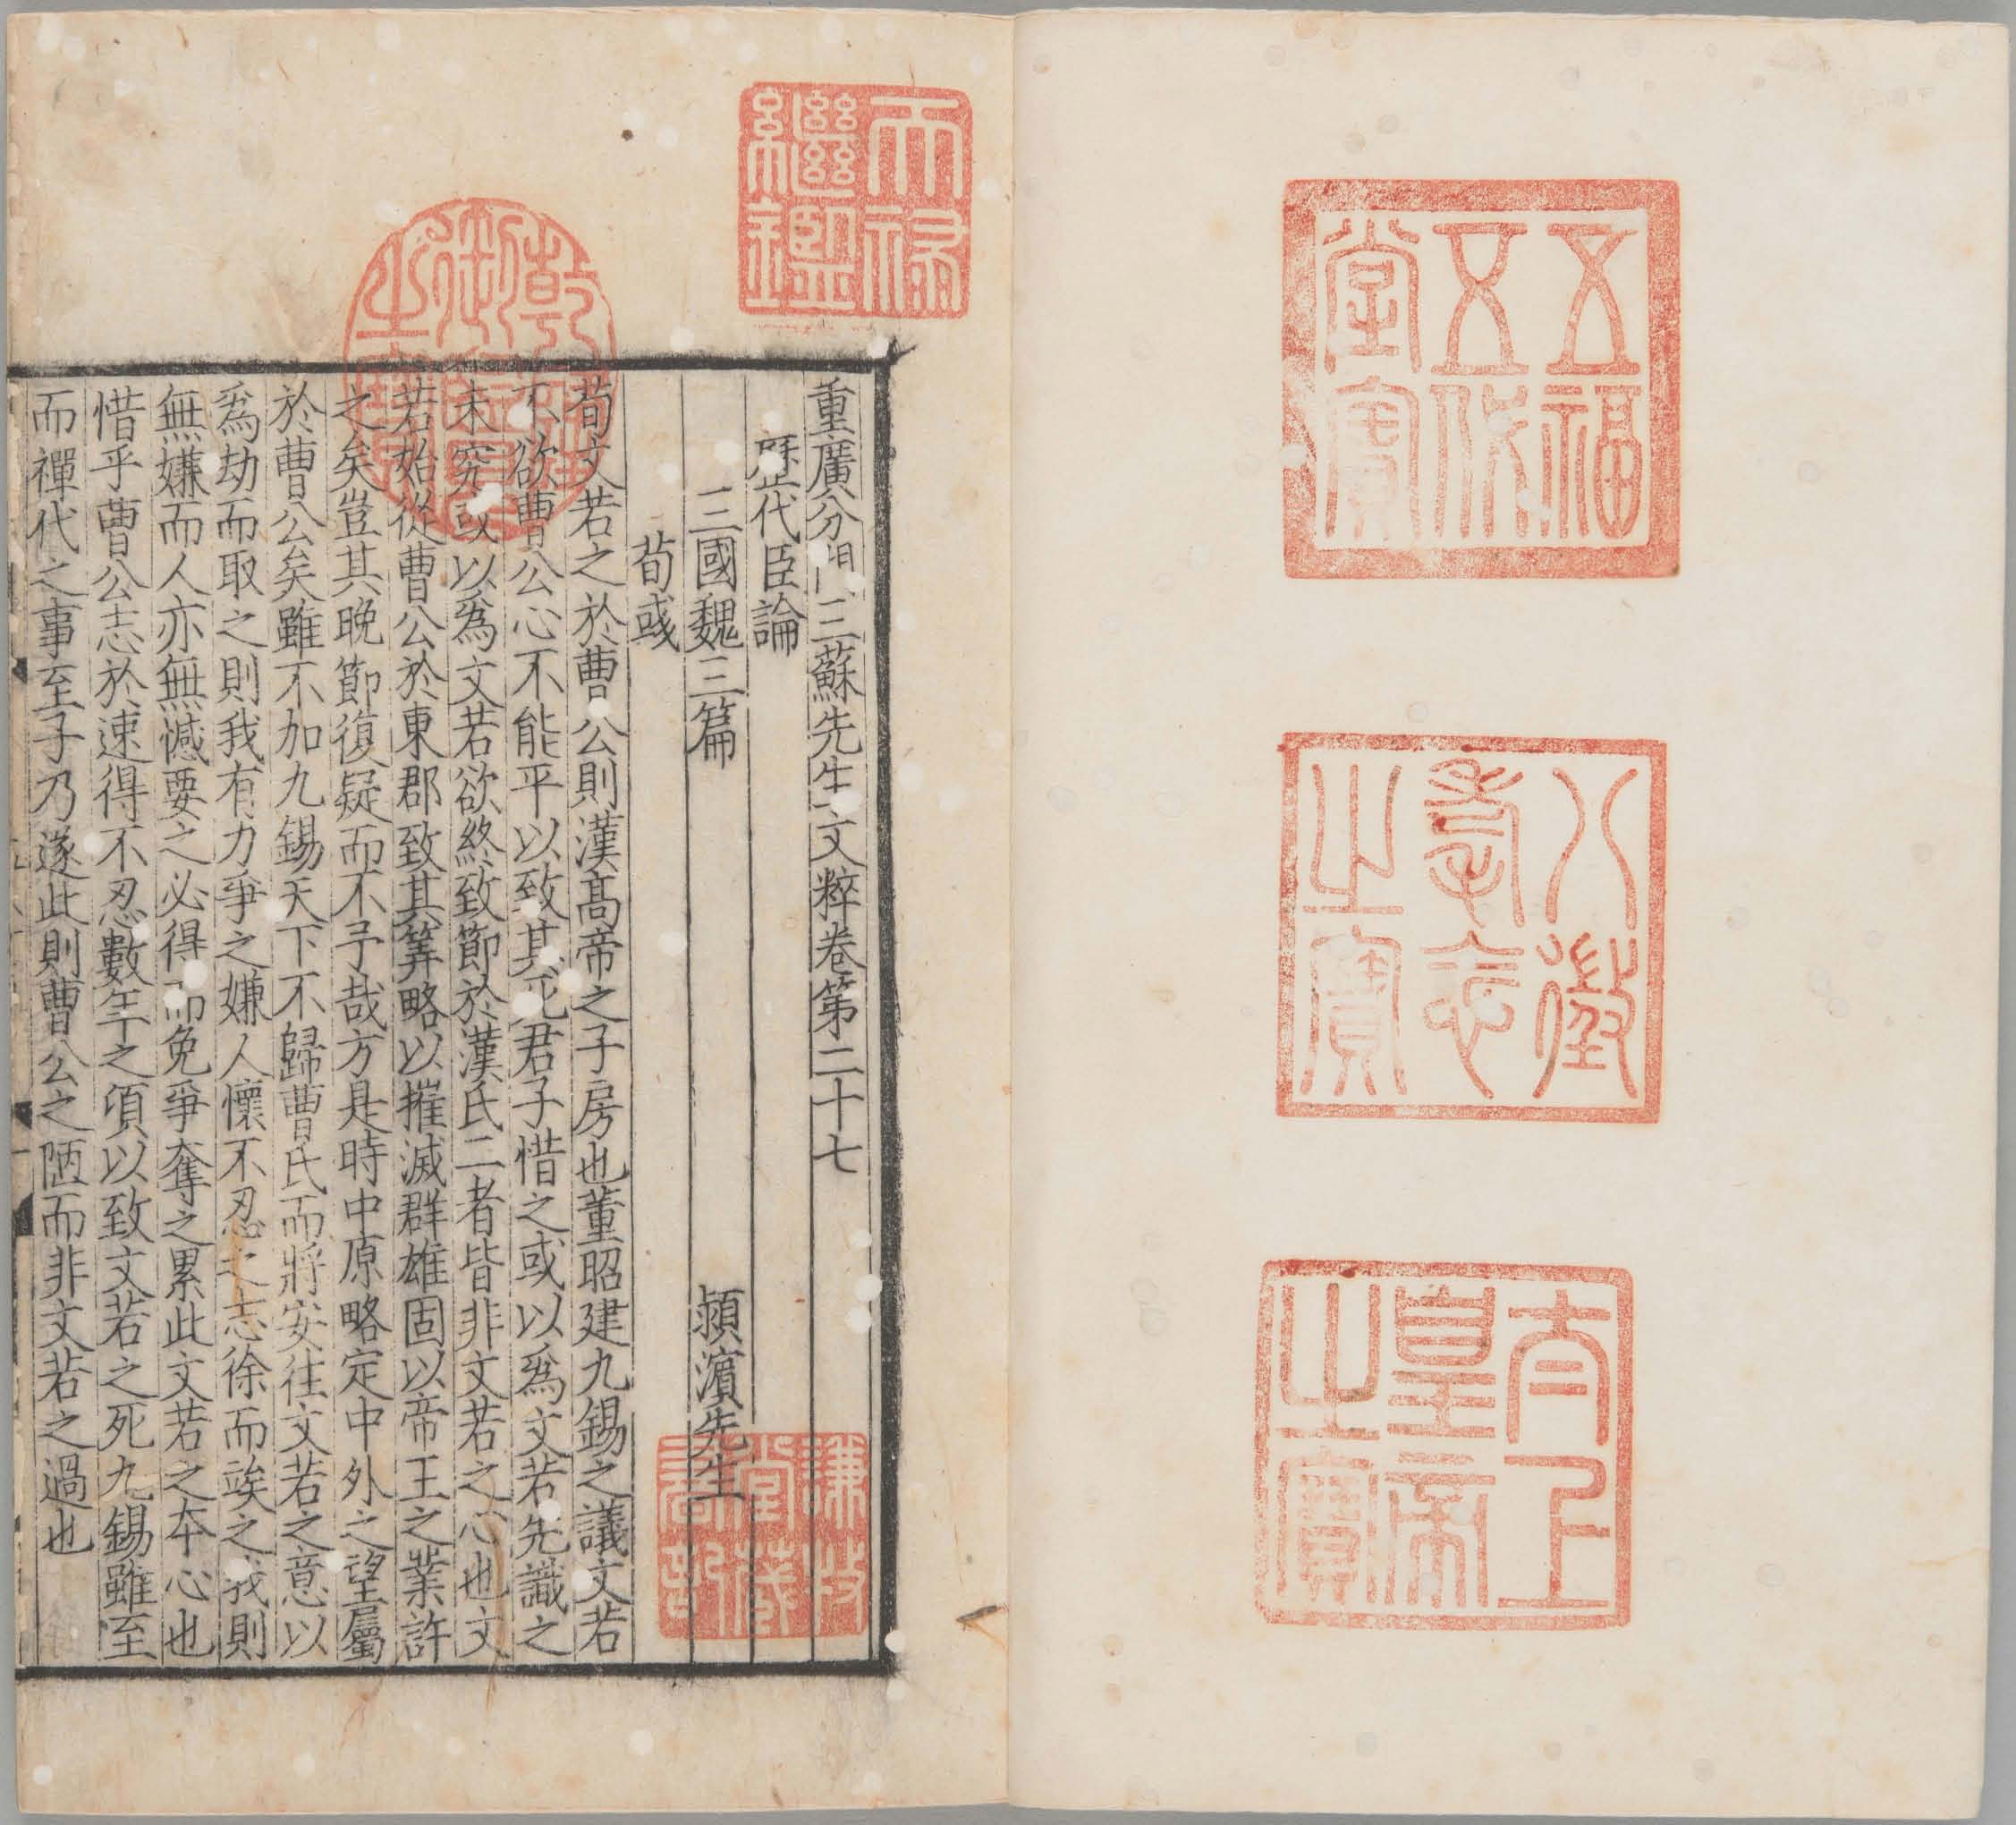 五福
五代
堂寶
八徵
耄念
之寶
太上
皇帝
之寶
天祿
繼鑑
乾隆
御覽
之寶
重廣分門三蘇先生文粹卷第二十七
歷代臣論
三國魏三篇 潁濱先生
荀彧
荀文若之於曹公則漢高帝之子房也董昭建九錫之議文若
不欲曹公心不能平以致其死君子惜之或以爲文若先識之
未究或以爲文若欲終致節於漢氏二者皆非文若之心也文
若始從曹公於東郡致其筭略以摧滅群雄固以帝王之業許
之矣豈其晚節復疑而不予哉方是時中原略定中外之望屬
於曹公矣雖不加九錫天下不歸曹氏而將安往文若之意以
爲劫而取之則我有力爭之嫌人懷不忍之志徐而竢之我則
無嫌而人亦無憾要之必得而免爭奪之累此文若之本心也
惜乎曹公志於速得不忍數年之頃以致文若之死九錫雖至
而禪代之事至子乃遂此則曹公之陋而非文若之過也
謙牧
堂藏
書記